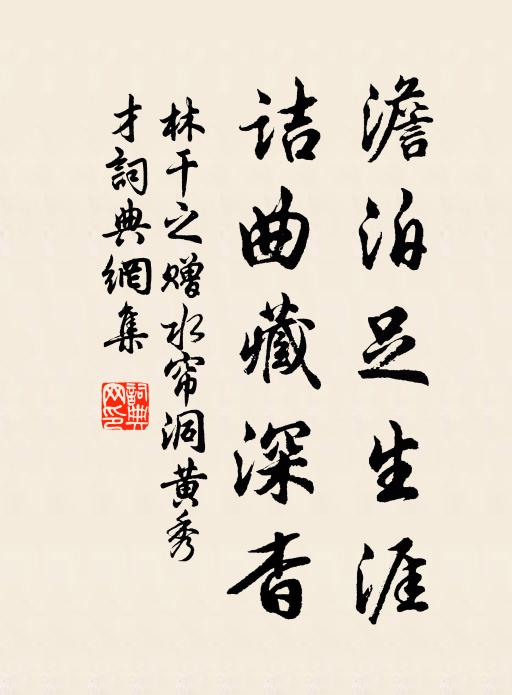 澹泊足生涯
诘曲藏深杳
林干之赠水帘洞黄秀
才詞典網集
詞典
网印